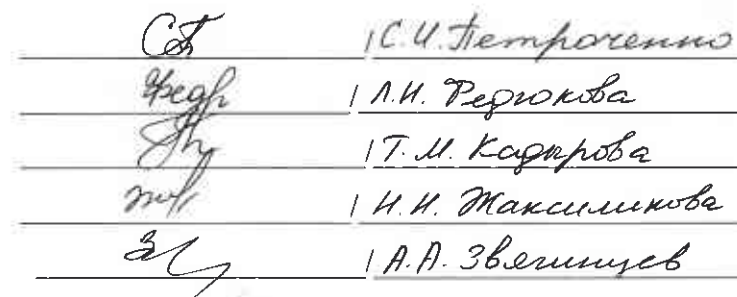 / С.И. Петроченко
/ Л.И. Федюкова
/ Т.М. Кадырова
/ Н.Н. Жаксиликова
/ А.А. Звягинцев